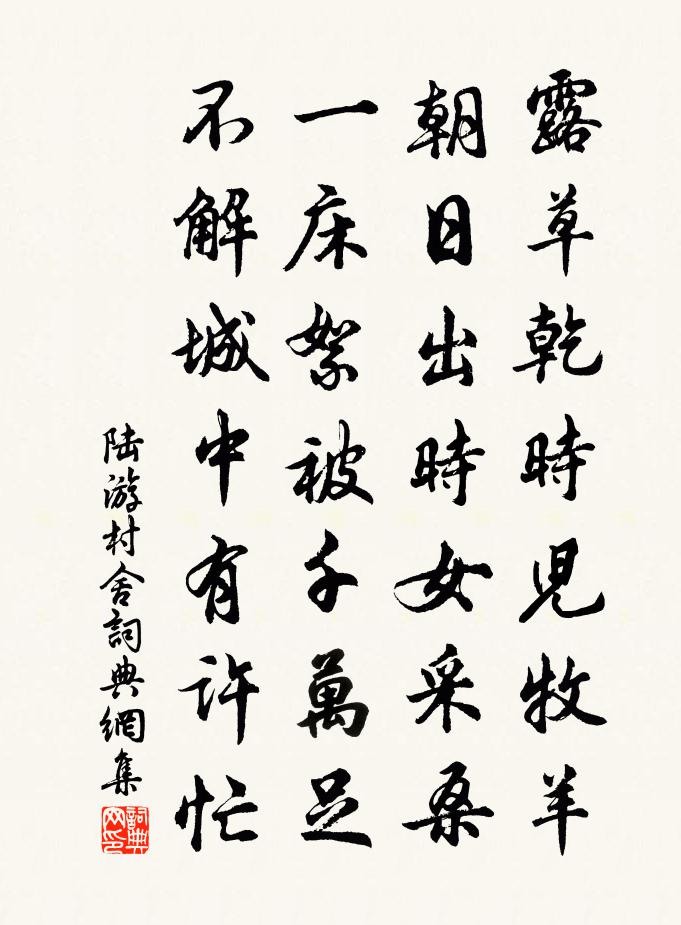 露草乾時兒牧羊
朝日出時女采桑
一床絮被千萬足
不解城中有許忙
陆游村舍詞典網集
詞典网印